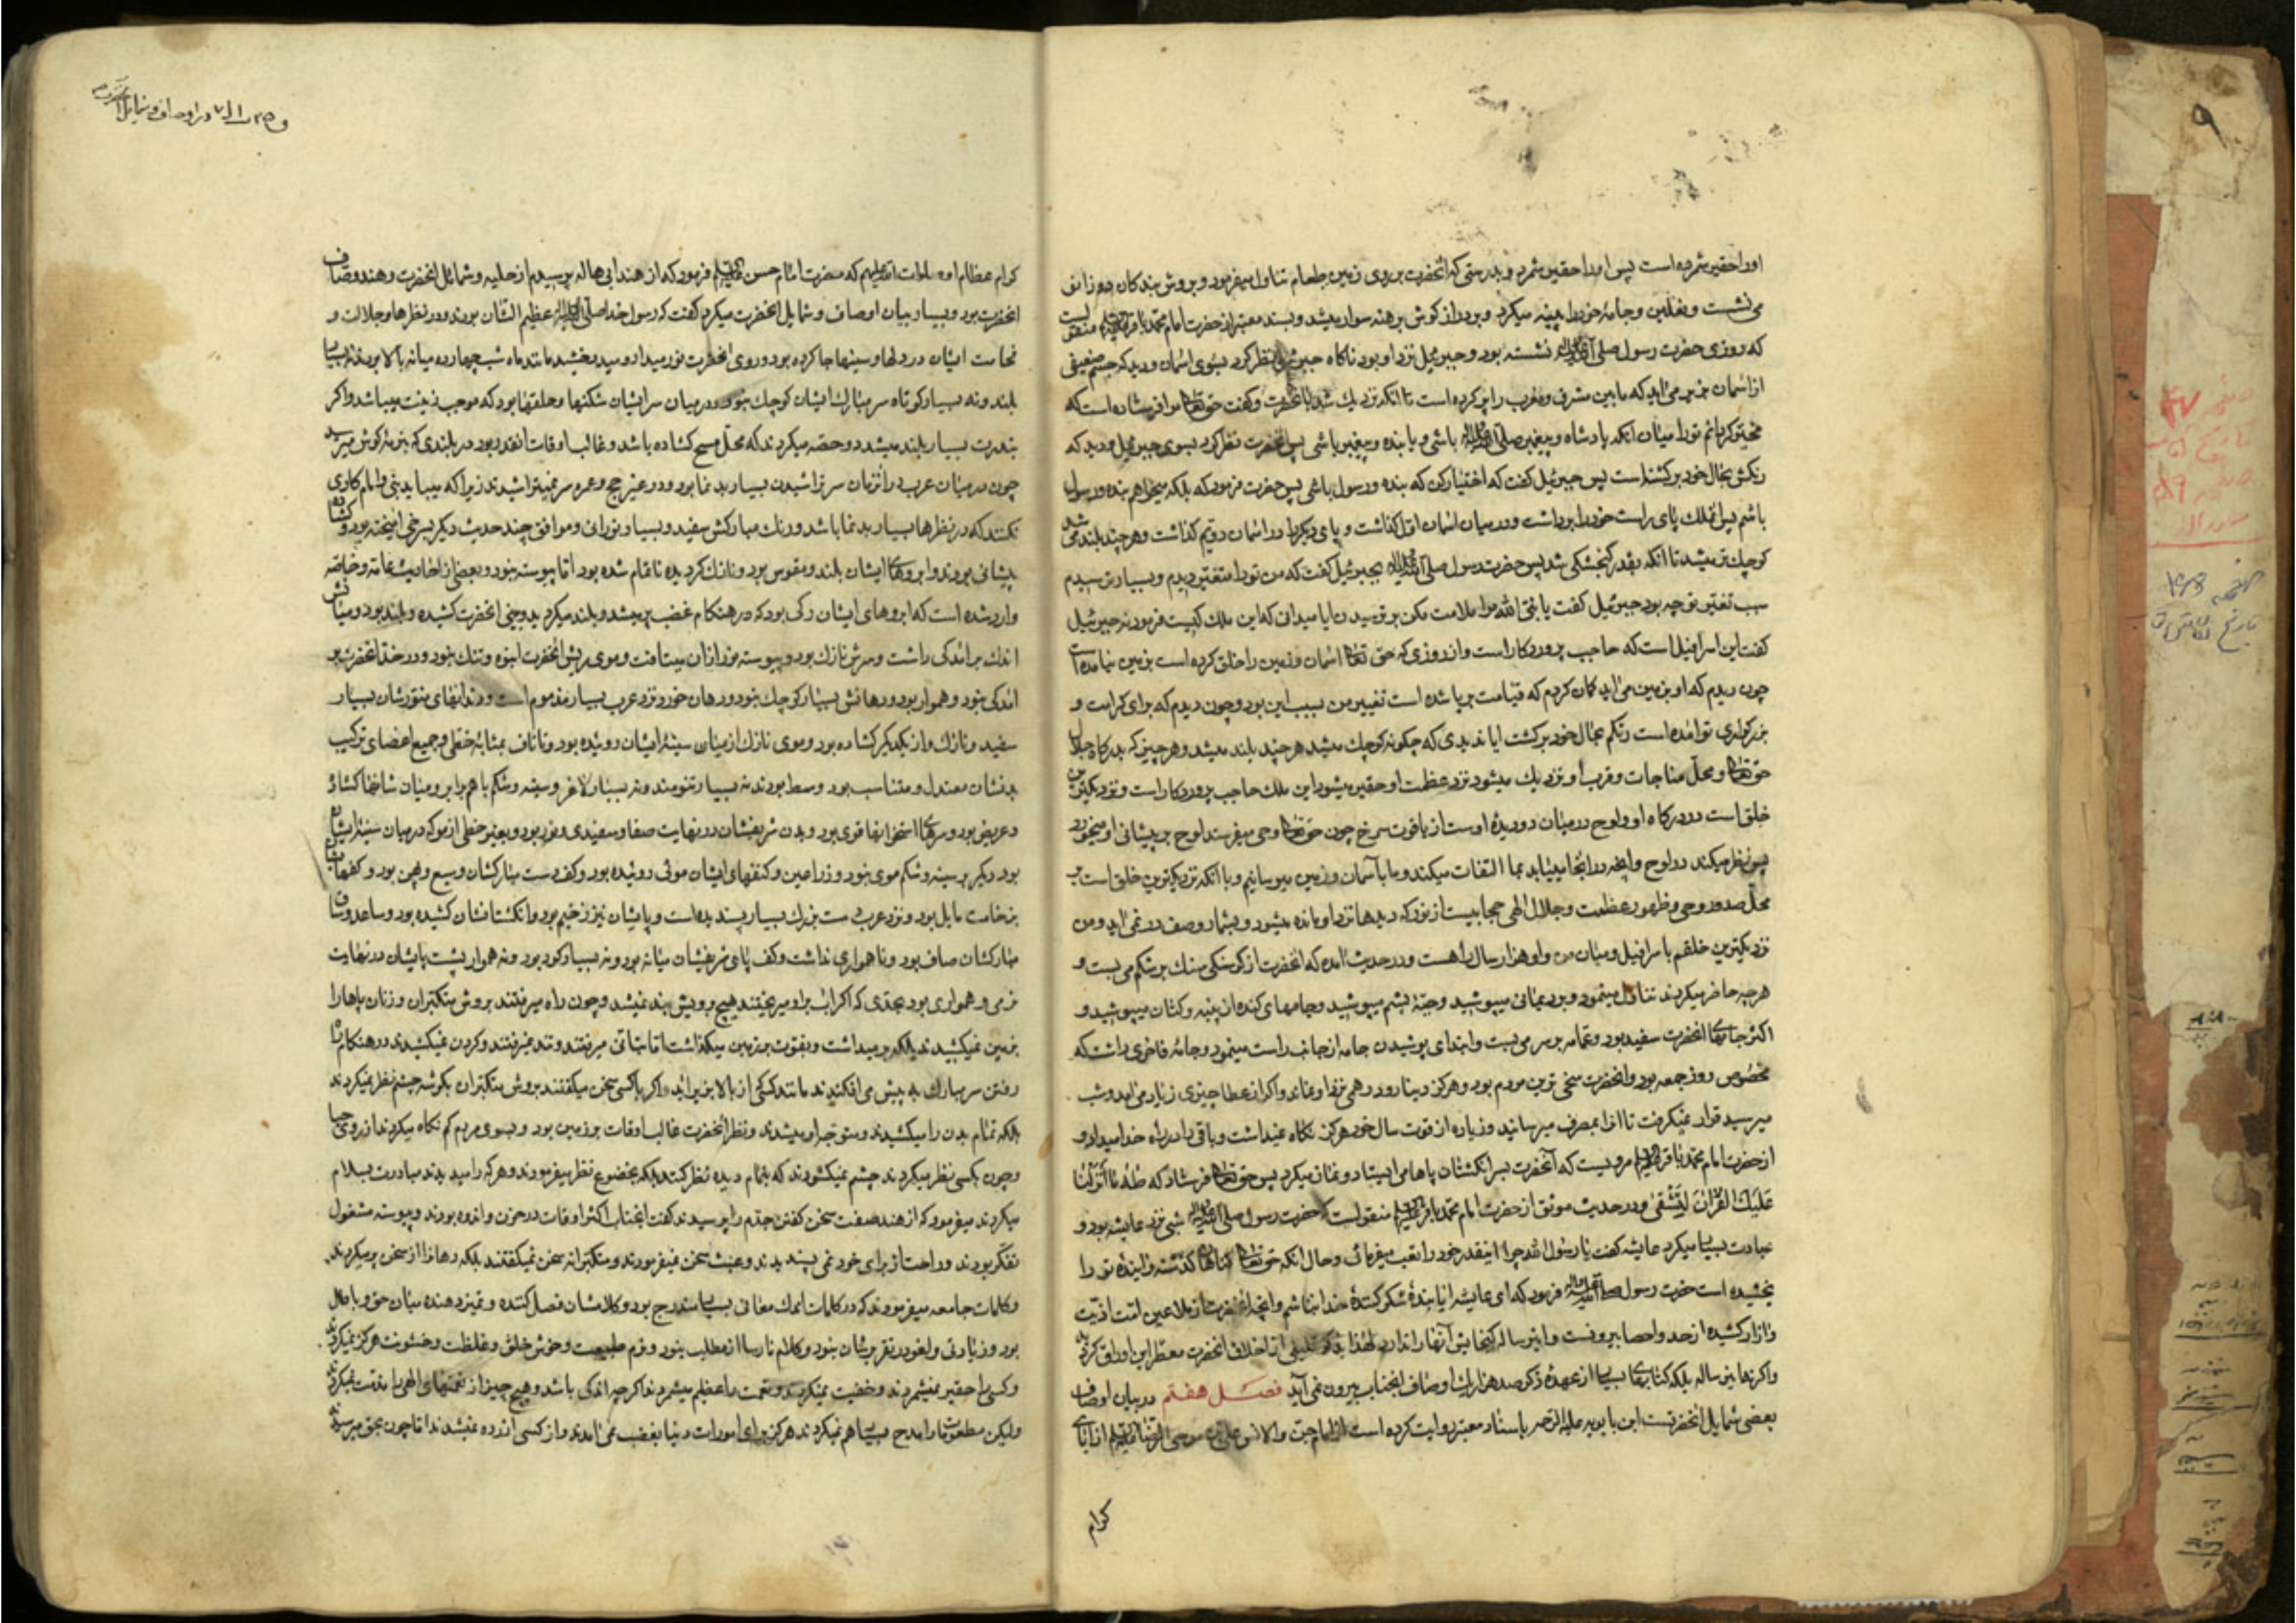 او را حقیر شمرده است پس او را حقیر شمرد و بدرستی که انحضرت بر روی زمین طعام تناول میفرمود و بروش بندکان دو زانو
می نشست و نعلین و جامهٔ خود را پینه میکرد و بر دراز کوش برهنه سوار میشد و بسند معتبر از حضرت امام محمد باقر منقولست
که روزی حضرت رسول صلی الله علیه واله نشسته بود و جبرئیل نزد او بود ناکاه جبرئیل نظر کرد بسوی اسمان و دید که
از اسمان بزیر می اید که مابین مشرق و مغرب را پر کرده است تا انکه نزدیك شد بانحضرت و کفت حق تعالی مرا فرستاده است که
مخیر کردانم تو را میان انکه پادشاه و پیغمبر باشی و یا بنده و پیغمبر باشی پس انحضرت نظر کرد بسوی جبرئیل و دید که
رنکش بحال خود برکشته است پس جبرئیل کفت که اختیار کن که بنده و رسول باشی پس حضرت فرمود که بلکه میخواهم بنده و رسول
باشم پس انملك پای راست خود را برداشت و در میان اسمان اول کذاشت و پای دیکر را در اسمان دویم کذاشت و هر چند بلند می شد
کوچك تر میشد تا انکه بقدر کنجشکی شد پس حضرت رسول صلی الله علیه واله بجبرئیل کفت که من تو را متغیر دیدم و بسیار ترسیدم
سبب تغیر تو چه بود جبرئیل کفت یا نبی الله مرا ملامت مکن بر ترسیدن ایا میدانی که این ملك کیست فرمود نه جبرئیل
کفت این اسرافیل است که حاجب پروردکار است و از روزی که حق تعالی اسمان و زمین را خلق کرده است بزمین نیامده است
چون دیدم که او بزمین می اید کمان کردم که قیامت برپا شده است تغییر من بسبب این بود و چون دیدم که برای کرامت و
بزرکواری تو امده است رنکم بحال خود برکشت ایا ندیدی که چکونه کوچك میشد هر چند بلند میشد و هر چیز که بدرکاه جلال
حق تعالی و محل مناجات و قرب او نزدیك میشود نزد عظمت او حقیر میشود این ملك حاجب پروردکار است و نزدیکترین
خلق است در درکاه او و لوح در میان دو دیدهٔ اوست از یاقوت سرخ چون حق تعالی وحی میفرستد لوح بر پیشانی او میخورد
پس نظر میکند در لوح و انچه در انجا مییابد بما القا میکند و ما بآسمان و زمین میرسانیم و با انکه نزدیکترین خلق است به
محل صدور وحی و ظهور عظمت و جلال الهی حجابیست از نور که دیدها نزد او مانده میشود و بشمار و وصف در نمی اید و من
نزدیکترین خلقم باسرافیل و میان من و او هزار سال راهست و در حدیث امده که انحضرت از کرسنکی سنك بر شکم می بست و
هر چه حاضر میکردند تناول مینمود و برد یمانی میپوشید و جبهٔ پشم میپوشید و جامهای کنده از پنبه و کتان میپوشید و
اکثر جامهای انحضرت سفید بود و عمامه بر سر می بست و ابتدای پوشیدن جامه از جانب راست مینمود و جامهٔ فاخری داشت که
مخصوص روز جمعه بود و انحضرت سخی ترین مردم بود و هرکز دینار و درهمی نزد او نماند و اکر از عطا چیزی زیاد می امد و شب
میرسید قرار نمیکرفت تا انرا بمصرف میرسانید و زیاده از قوت سال خود هرکز نکاه نمیداشت و باقی را در راه خدا میداد و
از حضرت امام محمد باقر مرویست که آنحضرت بسر انکشتان پاها می ایستاد و نماز میکرد پس حق تعالی فرستاد که طه ما انزلنا
علیك القران لتشقی و در حدیث موثق از حضرت امام محمد باقر منقولست که حضرت رسول صلی الله علیه واله شبی نزد عایشه بود و
عبادت بسیار میکرد عایشه کفت یا رسول الله چرا اینقدر خود را تعب میفرمائی و حال انکه حق تعالی کناهان کذشته و ایندهٔ تو را
بخشیده است حضرت رسول فرمود که ای عایشه ایا بندهٔ شکر کنندهٔ خدا نباشم و انچه انحضرت از ملاعین امت اذیت
و ازار کشیده از حد و احصا بیرونست و این رساله کنجایش آنها را ندارد لهذا بذکر قلیلی از اخلاق انحضرت معطر این اوراق کردید
و اکر نه این رساله بلکه کتابهای بسیار از عهدهٔ ذکر صد هزار یك اوصاف انجناب بیرون نمی آید فصل هفتم در بیان اوصاف
بعضی شمایل انحضرتست ابن بابویه علیه الرحمه باسناد معتبر روایت کرده است از امام جن و الانس علی بن موسی الرضا از ابای
کرام
کرام عظام او صلوات الله علیهم که حضرت امام حسن فرمود که از هند ابی هاله پرسیدم از حلیه و شمائل انحضرت و هند وصاف
انحضرت بود و بسیار بیان اوصاف و شمایل انحضرت میکرد کفت که رسول خدا صلی الله علیه واله عظیم الشان بودند و در نظرها و جلالت و
فخامت ایشان در دلها و سینها جا کرده بود و روی انحضرت نور میداد و میدرخشید مانند ماه شب چهارده میانه بالا بود نه بسیار
بلند و نه بسیار کوتاه سر مبارك ایشان کوچك نبود و در میان سر ایشان شکنها و حلقها بود که موجب زینت میباشد و اکر
بندرت بسیار بلند میشد دو حصه میکردند که محل مسح کشاده باشد و غالب اوقات انقدر بود در بلندی که بنرمهٔ کوش میرسید
چون در میان عرب در انزمان سر تراشیدن بسیار بد نما بود و در غیر حج و عمره سر نمیتراشیدند زیرا که میباید نبی و امام کاری
نکنند که در نظرها بسیار بد نما باشد و رنك مبارکش سفید و بسیار نورانی و موافق چند حدیث دیکر بسرخی امیخته بود و کشاده
پیشانی بودند و ابروهای ایشان بلند و مقوس بود و نازك کردیده تا تمام شده بود اما پیوسته نبود و بعضی از احادیث عامه و خاصه
وارد شده است که ابروهای ایشان رکی بود که در هنکام غضب پر میشد و بلند میکردید و بینی انحضرت کشیده و بلند بود و میانش
اندك برامدکی داشت و سرش نازك بود و پیوسته نور از ان میتافت و موی ریش انحضرت انبوه و تنك نبود و در خد انحضرت بر
امدکی نبود و هموار بود و دهانش بسیار کوچك نبود و دهان خورد نزد عرب بسیار مذموم است و دندانهای منورشان بسیار
سفید و نازك و از یکدیکر کشاده بود و موی نازك از میان سینهٔ ایشان روئیده بود تا ناف بمثابهٔ خطی و جمیع اعضای ترکیب
بدنشان معتدل و متناسب بود وسط بودند نه بسیار تنومند و نه بسیار لاغر و سینه و شکم با هم برابر و میان شانها کشاده
و عریض بود و سرهای استخوانها قوی بود و بدن شریفشان در نهایت صفا و سفیدی و نور بود و بغیر خطی از مو که در میان سینهٔ ایشان
بود دیکر بر سینه و شکم موی نبود و ذراعین و کتفهای ایشان موئی روئیده بود و کف دست مبارکشان وسیع و پهن بود و کفهایشان
بزخامت مایل بود و نزد عرب دست بزرك بسیار پسندیده است و پایشان نیز زخیم بود و انکشتانشان کشیده بود و ساعد و ساق
مبارکشان صاف بود و ناهمواری نداشت و کف پای شریفشان میانه بود و نه بسیار کود بود و نه هموار پشت پایشان در نهایت
نرمی و همواری بود بحدی که اکر اب بر او میریختند هیچ برویش بند نمیشد و چون راه میرفتند بروش متکبران و زنان پاها را
بزمین نمیکشیدند بلکه بر میداشت و بقوت بر زمین میکذاشت اما بتانی میرفتند و تند نمیرفتند و کردن نمیکشیدند در هنکام راه
رفتن سر مبارك به پیش می افکندند مانند کسی که از بالا بزیر اید و اکر با کسی سخن میکفتند بروش متکبران بکوشه چشم نظر نمیکردند
بلکه تمام بدن را میکشیدند و متوجه او میشدند و نظر انحضرت غالب اوقات بر زمین بود و بسوی مردم کم نکاه میکردند از روی حیا
و چون بکسی نظر میکردند چشم نمیکشودند که بتمام دیده نظر کنند بلکه بخضوع نظر میفرمودند و هر که را میدیدند مبادرت بسلام
میکردند میفرمود که از هند صفت سخن کفتن جدم را پرسیدند کفت انجناب اکثر اوقات در حزن و اندوه بودند و پیوسته مشغول
تفکر بودند و راحت از برای خود نمی پسندیدند و عبث سخن نمیفرمودند و متکبرانه سخن نمیکفتند بلکه دهان را از سخن پر میکردند
و کلمات جامعه میفرمودند که در کلمات اندك معانی بسیار مندرج بود و کلامشان فصل کننده و تمیز دهنده میان حق و باطل
بود و زیادتی و لغو در تقریرشان نبود و کلام نارسا از مطلب نبود و نرم طبیعت و خوش خلق و غلظت و خشونت هرکز نمیکردند
و کسی را حقیر نمیشمردند و خفیت نمیکردند و نعمت را عظیم میشمردند اکر چه اندکی باشد و هیچ چیز از نعمتهای الهی را مذمت نمیکردند
ولیکن مطعومات را مدح بسیار هم نمیکردند هرکز برای امورات دنیا بغضب نمی امدند و از کسی ازرده نمیشدند اما چون بحق میرسیدند